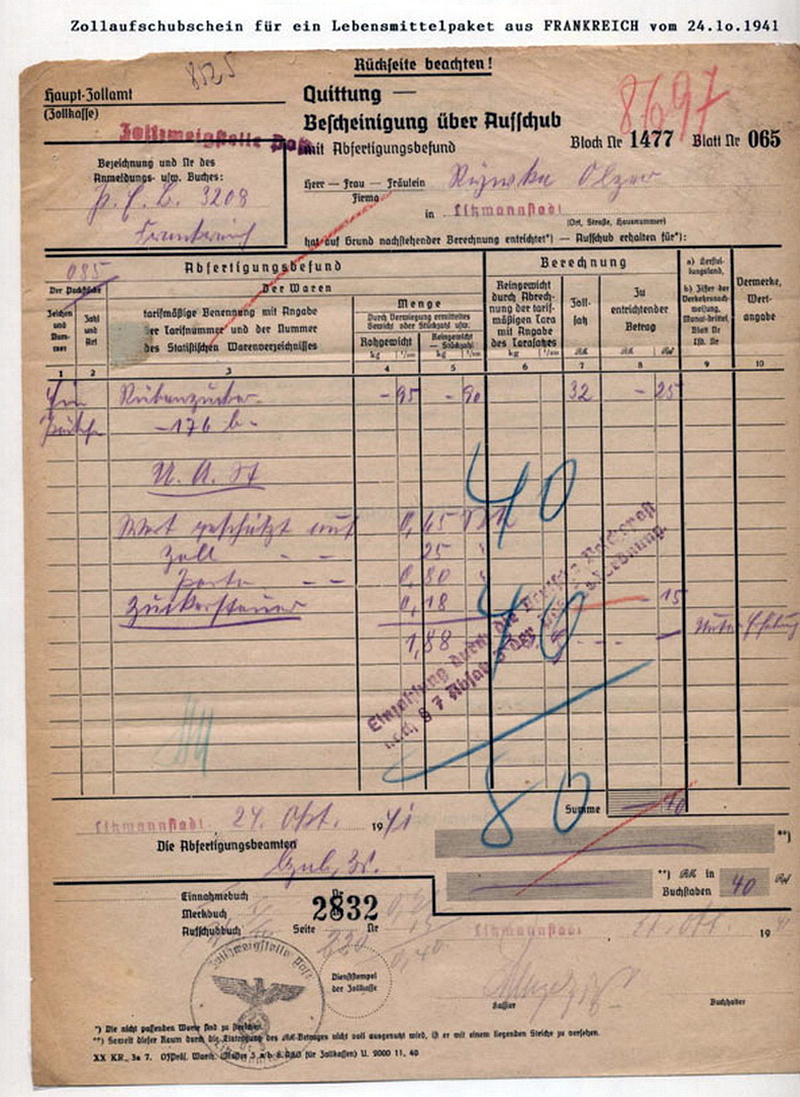 Zollaufschubschein für ein Lebensmittelpaket aus FRANKREICH vom 24.1o.1941
8525
Rückseite beachten!
Haupt-Zollamt
(Zollkasse)
Zollzweigstelle Post
Quittung —
Bescheinigung über Aufschub
mit Abfertigungsbefund
8697
Block Nr 1477 Blatt Nr 065
Bezeichnung und Nr des
Anmeldungs- usw. Buches:
3208
Frankreich
Herr — Frau — Fräulein
Firma
in Litzmannstadt
(Ort, Straße, Hausnummer)
hat auf Grund nachstehender Berechnung entrichtet*) — Aufschub erhalten für*):
085
Abfertigungsbefund
Berechnung
Der Packstücke
Der Waren
Zeichen und Nummer
Zahl und Art
tarifmäßige Benennung mit Angabe
der Tarifnummer und der Nummer
des Statistischen Warenverzeichnisses
Menge
Durch Verwiegung ermitteltes
Gewicht oder Stückzahl usw.
Rohgewicht
Reingewicht
— Stückzahl
Reingewicht
durch Abrechnung der tarifmäßigen Tara
mit Angabe
des Tarasatzes
Zollsatz
Zu
entrichtender
Betrag
a) Herstellungsland,
b) Ziffer der
Verkehrsnachweisung,
Monatsdrittel,
Blatt Nr
Lfd. Nr
Vermerke,
Wertangabe
kg kg kg RM RM Rpf
1 2 3 4 5 6 7 8 9 10
Ein Rübenzucker - 95 - 90 32 - 25
- 176 b -
U. A. St
40
Wert geschätzt auf 0,65 RM
Zoll - - 25 "
Porto - - 0,80 "
Zuckersteuer 0,18 15
1,88
40
Einziehung durch die Deutsche Reichspost
nach § 7 Absatz 3 der
80
Summe 40
Litzmannstadt 24. Okt. 1941
Die Abfertigungsbeamten
**)
**) RM in
Buchstaben
40 Rpf
Einnahmebuch
Merkbuch
Aufschubbuch
Seite
Nr
2832
220
0,40
Litzmannstadt
19
Zollzweigstelle Post
Dienststempel
der Zollkasse
Kassier
Buchhalter
*) Die nicht passenden Worte sind zu streichen.
**) Soweit dieser Raum durch die Eintragung des RM-Betrages nicht voll ausgenutzt wird, ist er mit einem liegenden Striche zu versehen.
XX KR., 3a 7. OFPräs. Warth. (Muster 3 zu b. 8. AZO für Zollkassen) U. 2000 11. 40